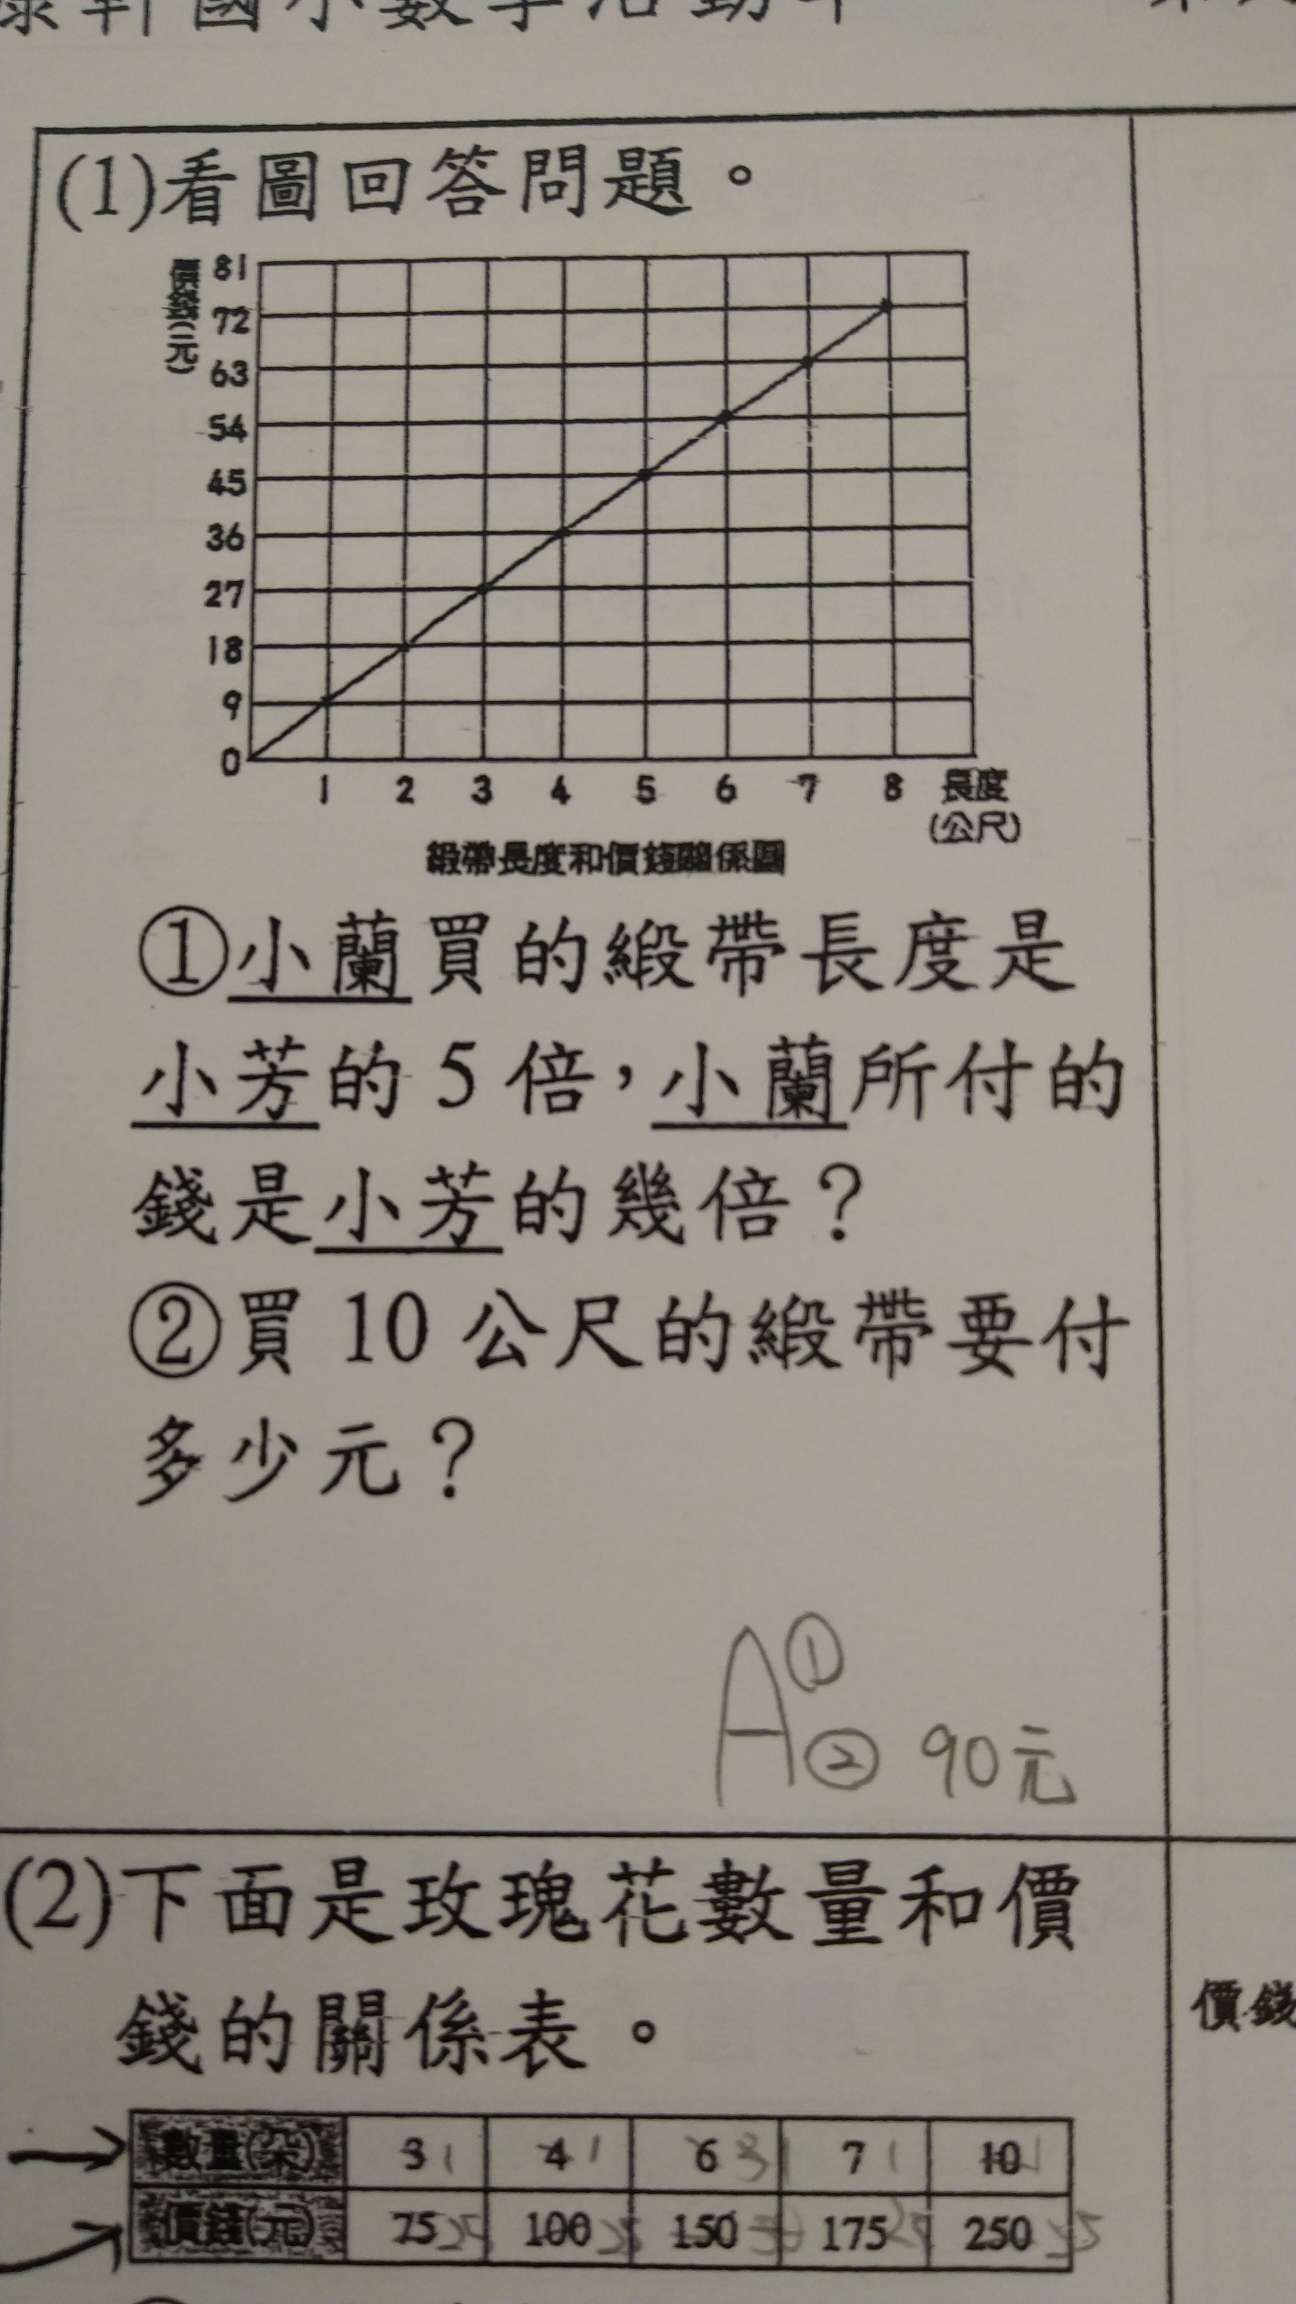 (1)看圖回答問題。
價錢(元)
81
72
63
54
45
36
27
18
9
0
1 2 3 4 5 6 7 8 長度
(公尺)
緞帶長度和價錢關係圖
①小蘭買的緞帶長度是
小芳的5倍,小蘭所付的
錢是小芳的幾倍?
②買10公尺的緞帶要付
多少元?
A①
②90元
(2)下面是玫瑰花數量和價
錢的關係表。
價錢
數量(朵) 3 1 4 1 6 3 1 7 1 10 1
價錢(元) 75 25 100 25 150 50 175 25 250 25